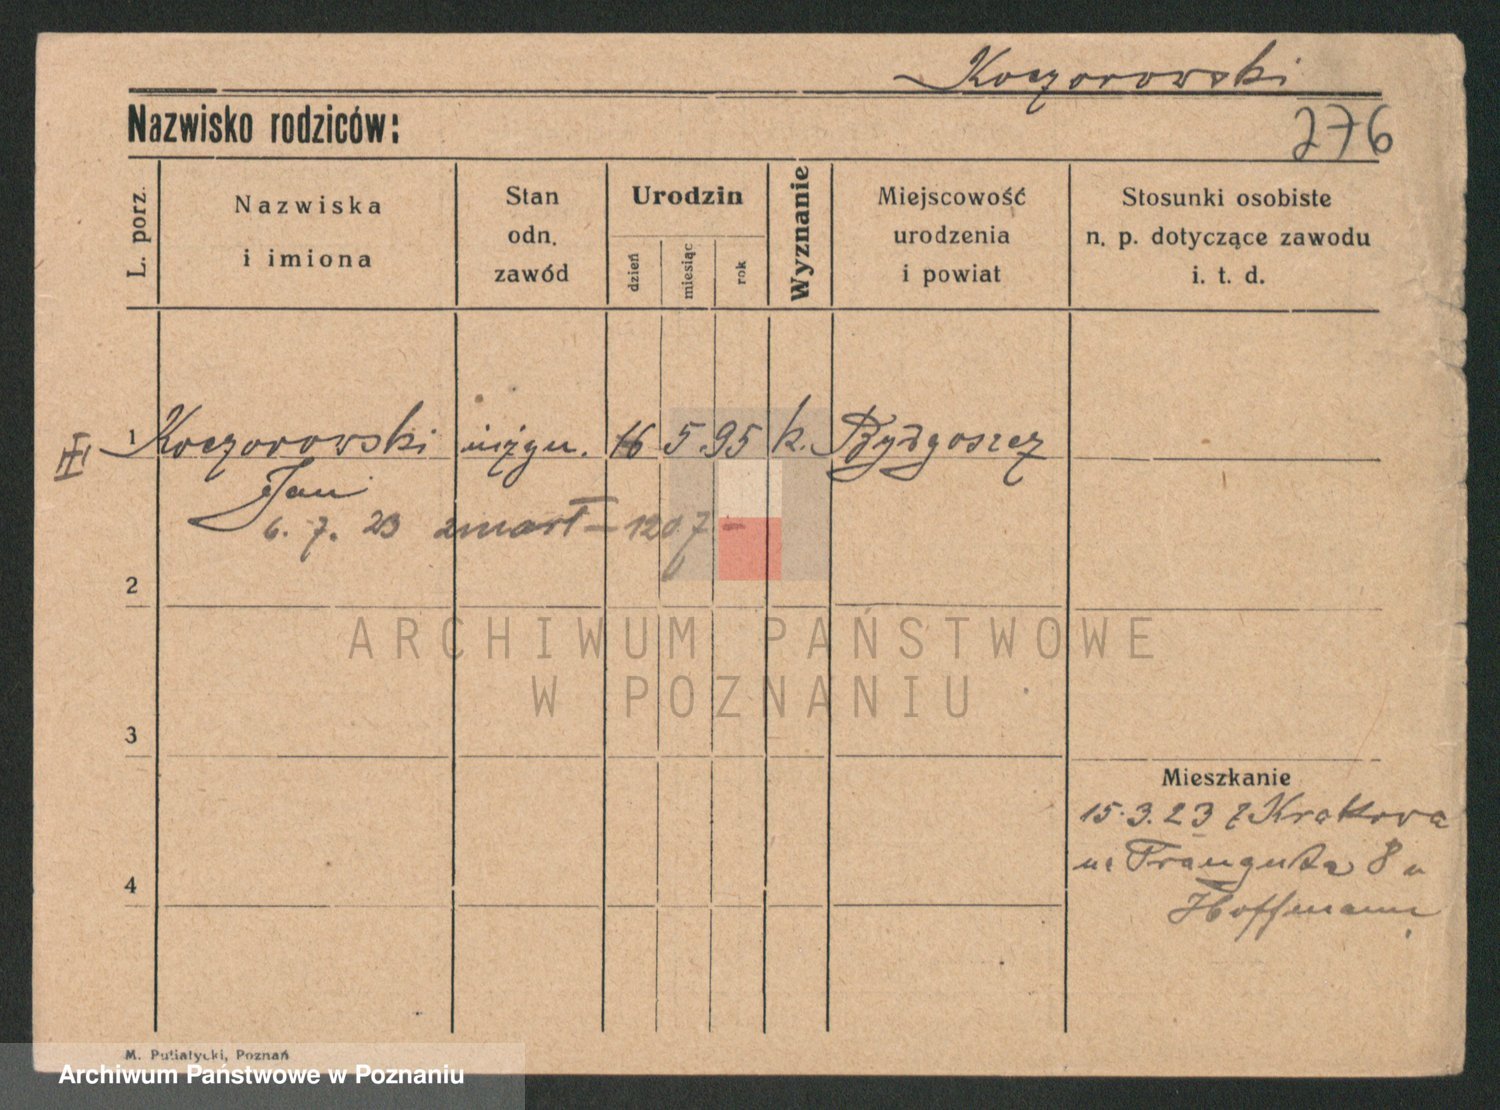 Koczorowski
Nazwisko rodziców:
276
L. porz.
Nazwiska
i imiona
Stan
odn.
zawód
Urodzin
dzień
miesiąc
rok
Wyznanie
Miejscowość
urodzenia
i powiat
Stosunki osobiste
n. p. dotyczące zawodu
i. t. d.
III 1 Koczorowski inżyn. 16 5 95 k. Bydgoszcz
Jan
6. 7. 23 zmarł – 120.7 –
2
3
4
Mieszkanie
15.3.23 z Krakowa
Traugutta 8 u
Hoffmann
ARCHIWUM PAŃSTWOWE
W POZNANIU
M. Putiatycki, Poznań
Archiwum Państwowe w Poznaniu